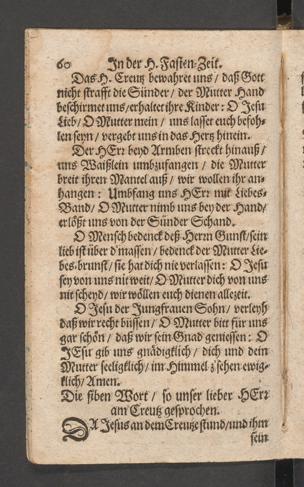 60 In der H. Fasten-Zeit.
Das H. Creutz bewahret uns / daß Gott
nicht strafft die Sünder / der Mutter Hand
beschirmet uns / erhaltet ihre Kinder: O Jesu
Lieb / O Mutter mein / uns lasset euch befoh-
len seyn / vergebt uns in das Hertz hinein.
Der HErr beyd Armben streckt hinauß /
uns Waißlein umbzufangen / die Mutter
breit ihren Mantel auß / wir wollen ihr an-
hangen: Umbfang uns HErr mit Liebes-
Band / O Mutter nimb uns bey der Hand /
erlößt uns von der Sünder Schand.
O Mensch bedenck deß Herrn Gunst / sein
lieb ist über d'massen / bedenck der Mutter Lie-
bes-brunst / sie hat dich nie verlassen: O Jesu
sey von uns nit weit / O Mutter dich von uns
nit scheyd / wir wöllen euch dienen allezeit.
O Jesu der Jungfrauen Sohn / verleyh
daß wir recht büssen / O Mutter bitt für uns
gar schön / daß wir sein Gnad geniessen: O
JEsu gib uns gnädigklich / dich und dein
Mutter seeligklich / im Himmel z'sehen ewig-
klich / Amen.
Die siben Wort / so unser lieber HErr
am Creutz gesprochen.
DA Jesus an dem Creutze stund / und ihm
sein